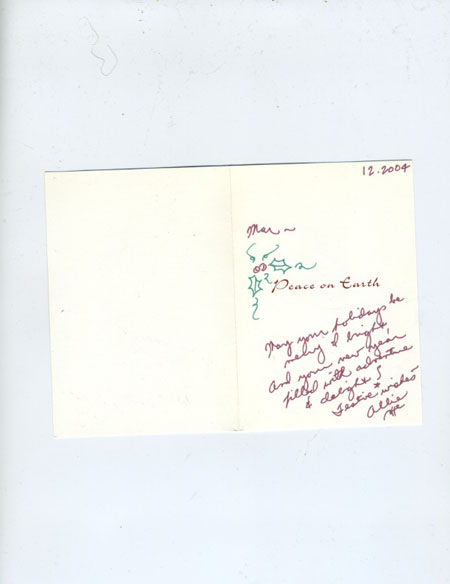 12.2004
Mar ~
Peace on Earth
May your holidays be
merry & bright
And your new year
filled with adventure
& delight!
Festive wishes
Allie